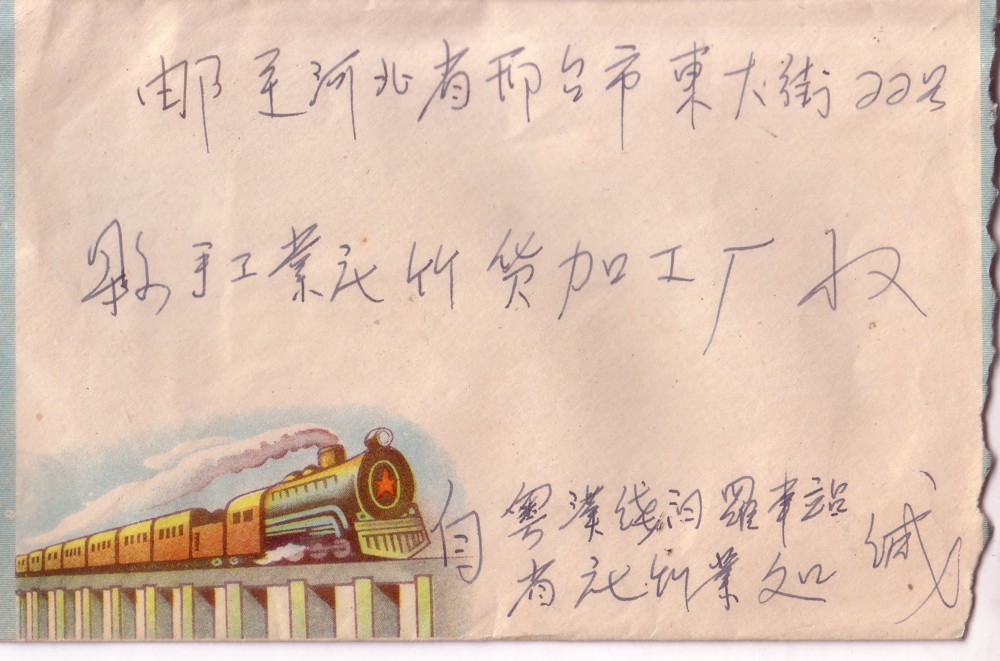 邮至河北省邢台市東大街22号
县手工業社竹货加工厂 收
自 粤漢线汨羅車站
省社竹業 缄